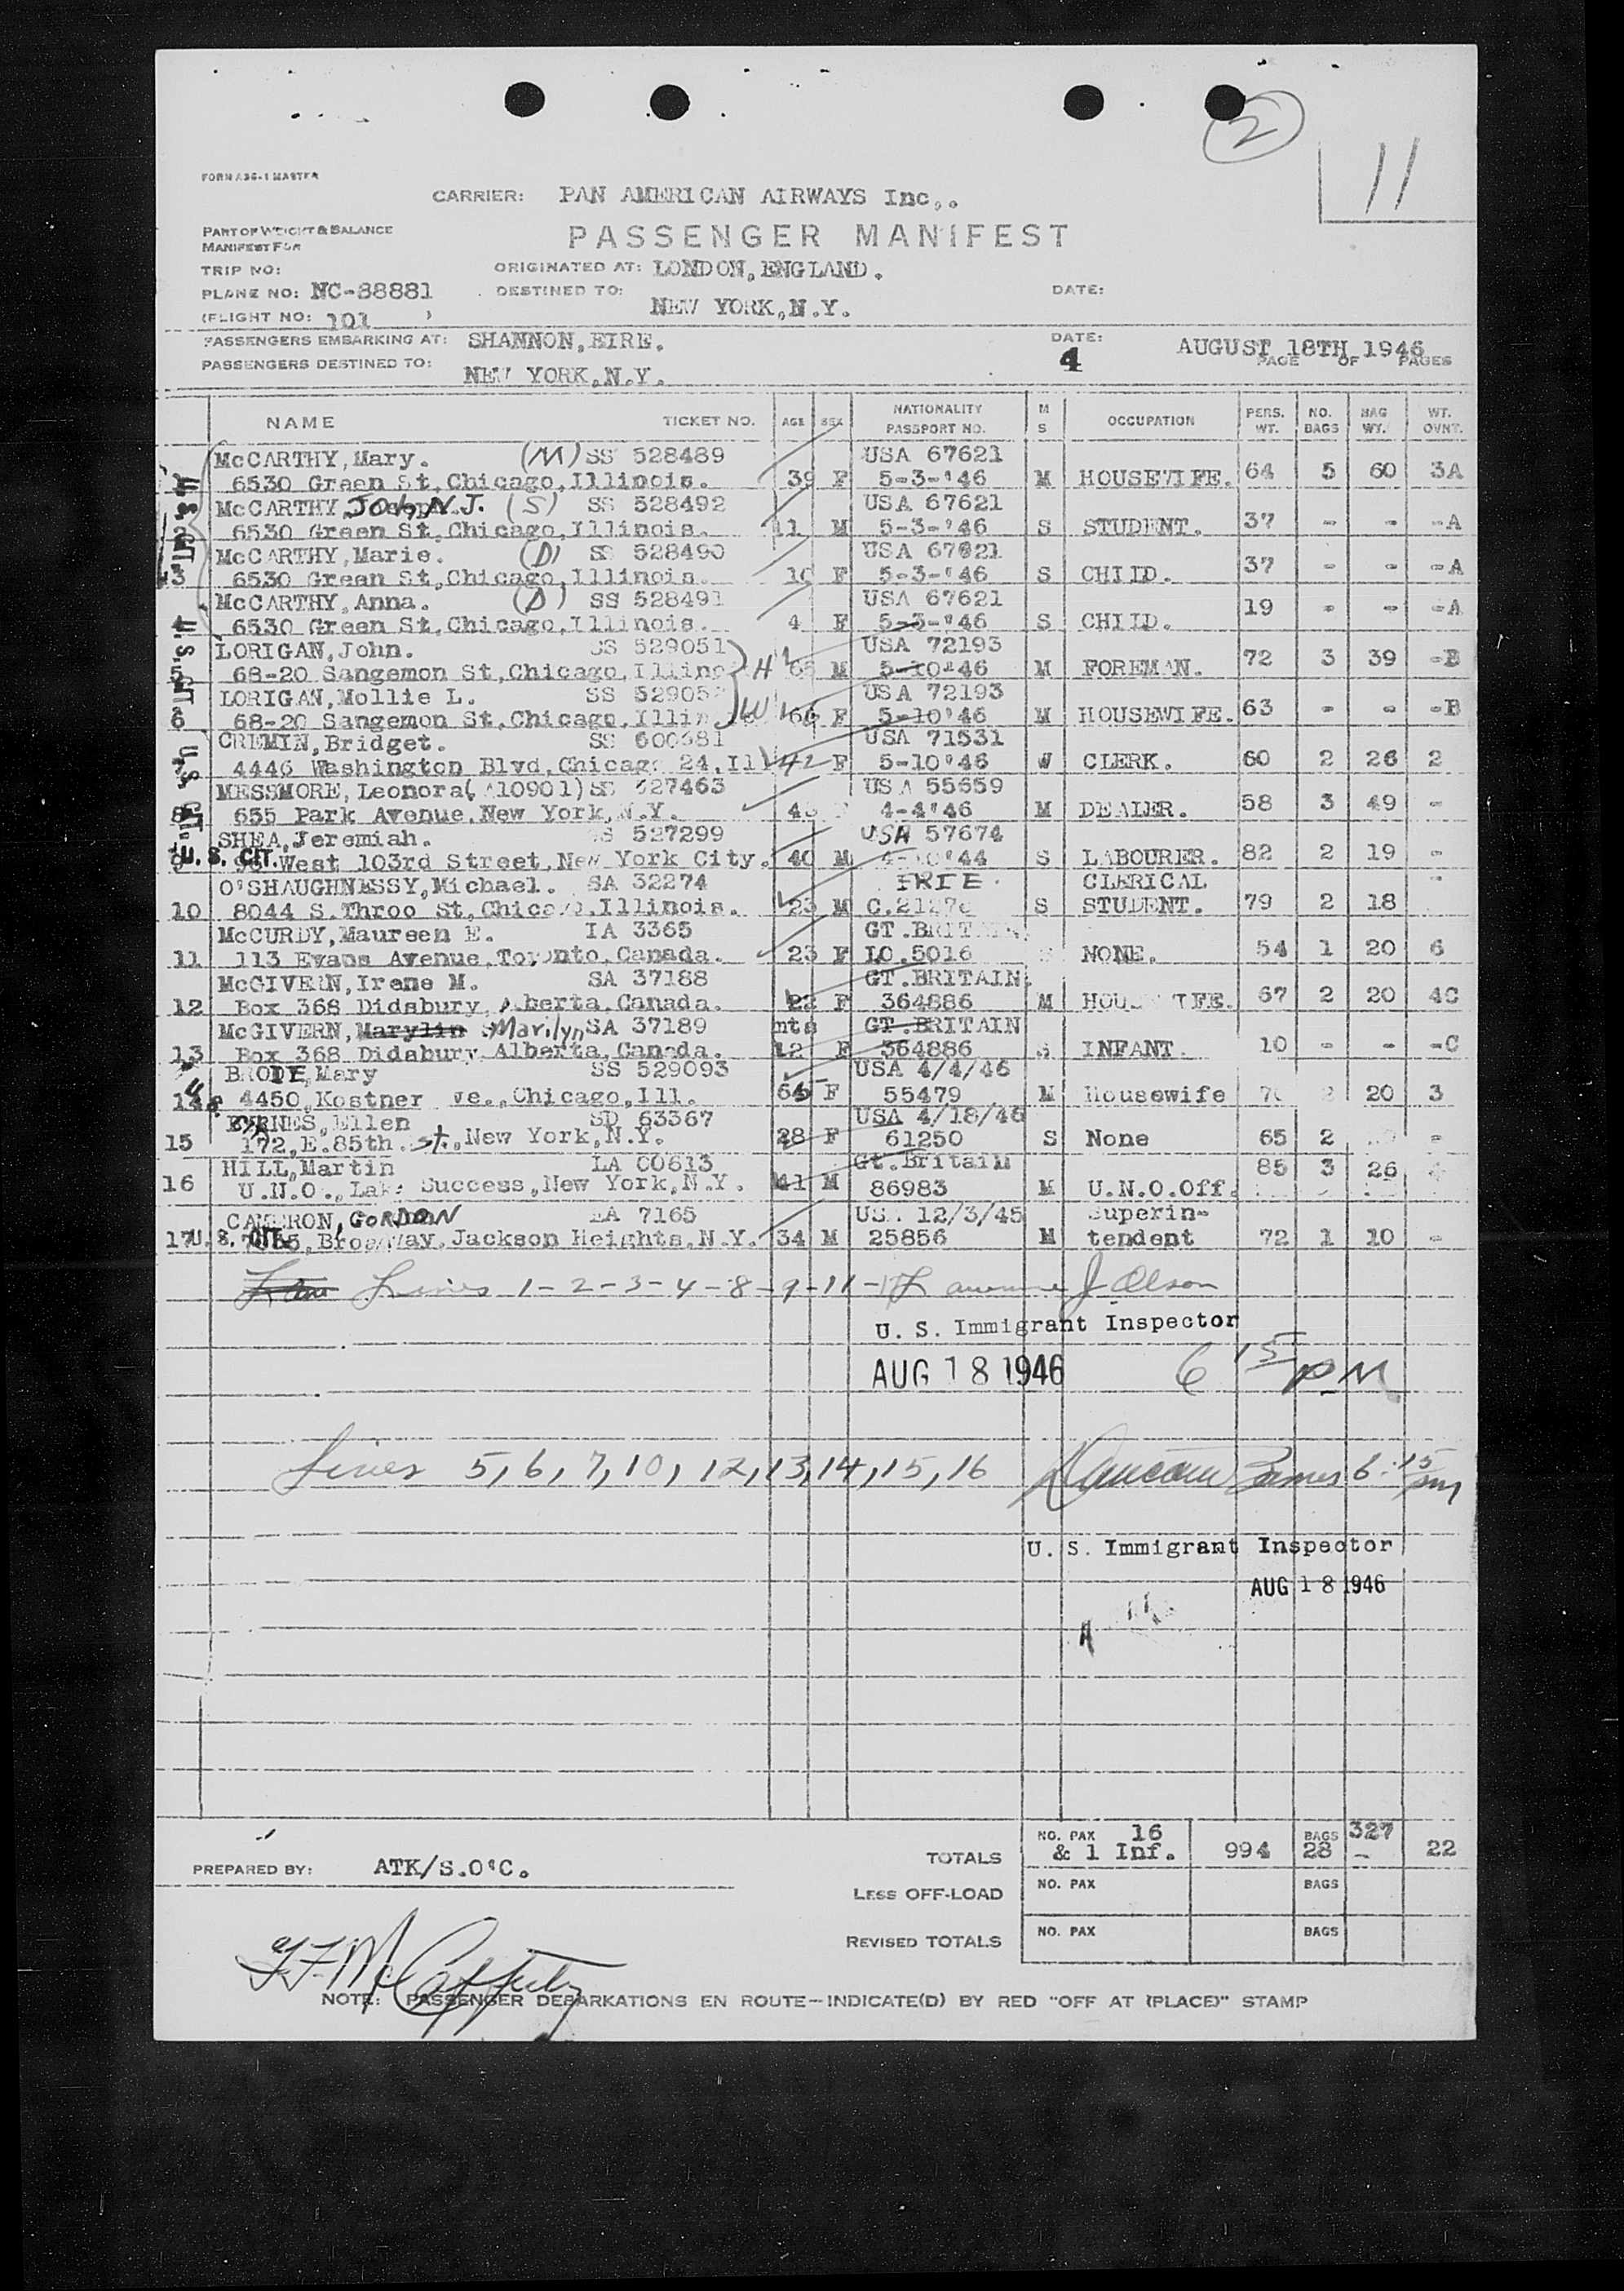 2
11
FORM A36-1 MASTER
CARRIER: PAN AMERICAN AIRWAYS Inc,.
PART OF WEIGHT & BALANCE
MANIFEST FOR
PASSENGER MANIFEST
TRIP NO:
ORIGINATED AT: LONDON, ENGLAND.
PLANE NO: NC-88881
DESTINED TO: NEW YORK, N.Y.
DATE:
(FLIGHT NO: 101 )
PASSENGERS EMBARKING AT: SHANNON, EIRE.
DATE: AUGUST 18TH 1946
PASSENGERS DESTINED TO: NEW YORK, N.Y.
4 PAGE OF PAGES
NAME TICKET NO. AGE SEX NATIONALITY PASSPORT NO. M S OCCUPATION PERS. WT. NO. BAGS BAG WT. WT. OVNT.
McCARTHY, Mary. (M) SS 528489 USA 67621
6530 Green St, Chicago, Illinois. 39 F 5-3-'46 M HOUSEWIFE. 64 5 60 3A
McCARTHY, JOHN J. (S) SS 528492 USA 67621
6530 Green St, Chicago, Illinois. 11 M 5-3-'46 S STUDENT. 37 - - -A
McCARTHY, Marie. (D) SS 528490 USA 67621
3 6530 Green St, Chicago, Illinois. 10 F 5-3-'46 S CHILD. 37 - - -A
McCARTHY, Anna. (D) SS 528491 USA 67621
4 6530 Green St, Chicago, Illinois. 4 F 5-3-'46 S CHILD. 19 - - -A
LORIGAN, John. SS 529051 H USA 72193
5 68-20 Sangemon St, Chicago, M 5-10-46 M FOREMAN. 72 3 39 -B
LORIGAN, Mollie L. SS W USA 72193
6 68-20 Sangemon St, Chicago, 66 F 5-10'46 M HOUSEWIFE. 63 - - -B
CREMIN, Bridget. SS USA 71531
4446 Washington Blvd, Chicago 24, Ill 42 F 5-10'46 W CLERK. 60 2 26 2
MESSMORE, Leonora( A10901) SS 527463 USA 55659
8 655 Park Avenue, New York, N.Y. M DEALER. 58 3 49 -
4-4'46
SHEA, Jeremiah. SS 527299 USA 57674
9 U. S. CIT. West 103rd Street, New York City. 40 M S LABOURER. 82 2 19 -
O'SHAUGHNESSY, Michael. SA 32274 CLERICAL
10 8044 S. Throo St, Chicago, Illinois. 23 M S STUDENT. 79 2 18
McCURDY, Maureen E. IA 3365 GT. BRITAIN.
11 113 Evans Avenue, Toronto, Canada. 23 F LO.5016 NONE. 54 1 20 6
McGIVERN, Irene M. SA 37188 GT. BRITAIN.
12 Box 368 Didsbury, Alberta, Canada. 22 F 364886 M HOUSEWIFE. 67 2 20 4C
McGIVERN, Marylin Marilyn SA 37189 mts GT. BRITAIN
13 Box 368 Didsbury, Alberta, Canada. 12 F 364886 S INFANT. 10 - - -C
BRODE, Mary SS 529093 USA 4/4/46
14 4450, Kostner Ave., Chicago, Ill. F 55479 M Housewife 20 3
Ellen SD 63367 USA 4/18/46
15 172, E. 85th. St., New York, N.Y. 28 F 61250 S None 65 2 -
HILL, Martin LA 00613 Gt. Britain 85 3 26
16 U.N.O., Lake Success, New York, N.Y. 41 M 86983 M U.N.O. Off.
CAMERON, GORDON 7165 USA 12/3/45 Superin-
17 U. S. CIT. Broadway, Jackson Heights, N.Y. 34 M 25856 M tendent 72 1 10 -
Lines 1-2-3-4-8-9-11-17 J Olson
U. S. Immigrant Inspector
AUG 18 1946 6 15 PM
Lines 5, 6, 7, 10, 12, 13, 14, 15, 16 6:15 pm
U. S. Immigrant Inspector
AUG 18 1946
PREPARED BY: ATK/S.O'C.
TOTALS NO. PAX 16 & 1 Inf. 994 BAGS 28 327 - 22
LESS OFF-LOAD NO. PAX BAGS
REVISED TOTALS NO. PAX BAGS
NOTE: PASSENGER DEBARKATIONS EN ROUTE—INDICATE(D) BY RED "OFF AT (PLACE)" STAMP